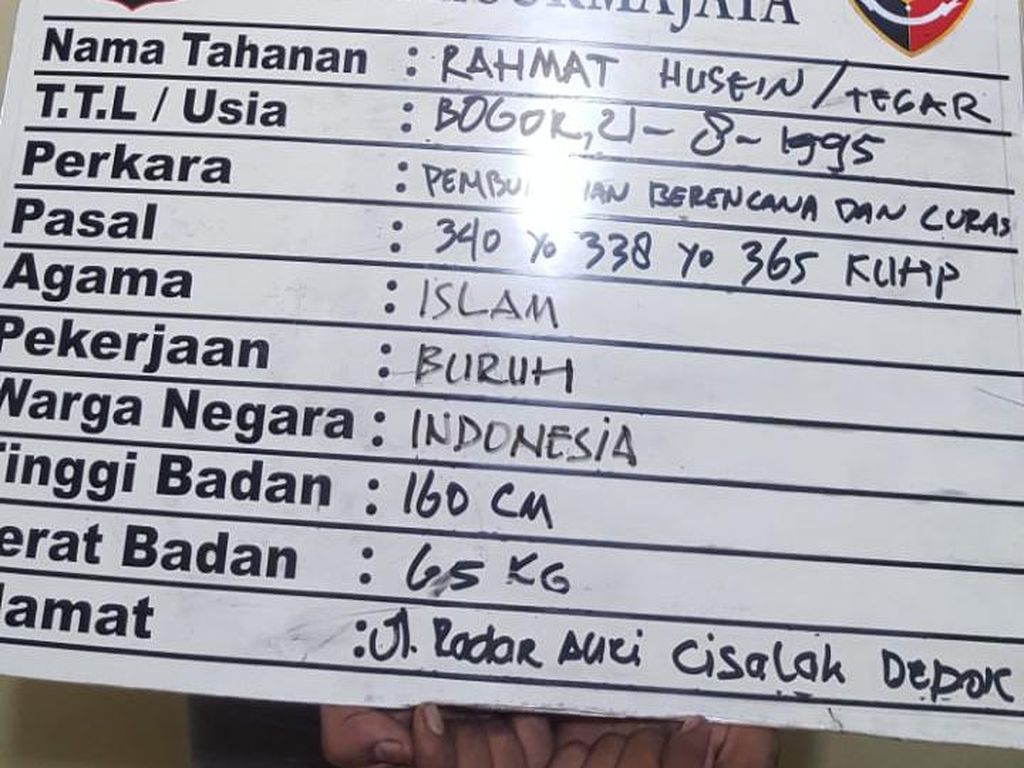 Nama Tahanan : RAHMAT HUSEIN / TEGAR
T.T.L / Usia : BOGOR, 21 - 8 - 1995
Perkara : BERENCANA DAN CURAS
Pasal : 340 Yo 338 Yo 365 KUHP
Agama : ISLAM
Pekerjaan : BURUH
Warga Negara : INDONESIA
inggi Badan : 160 CM
erat Badan : 65 KG
lamat : Jl. Radar AURI Cisalak Depok